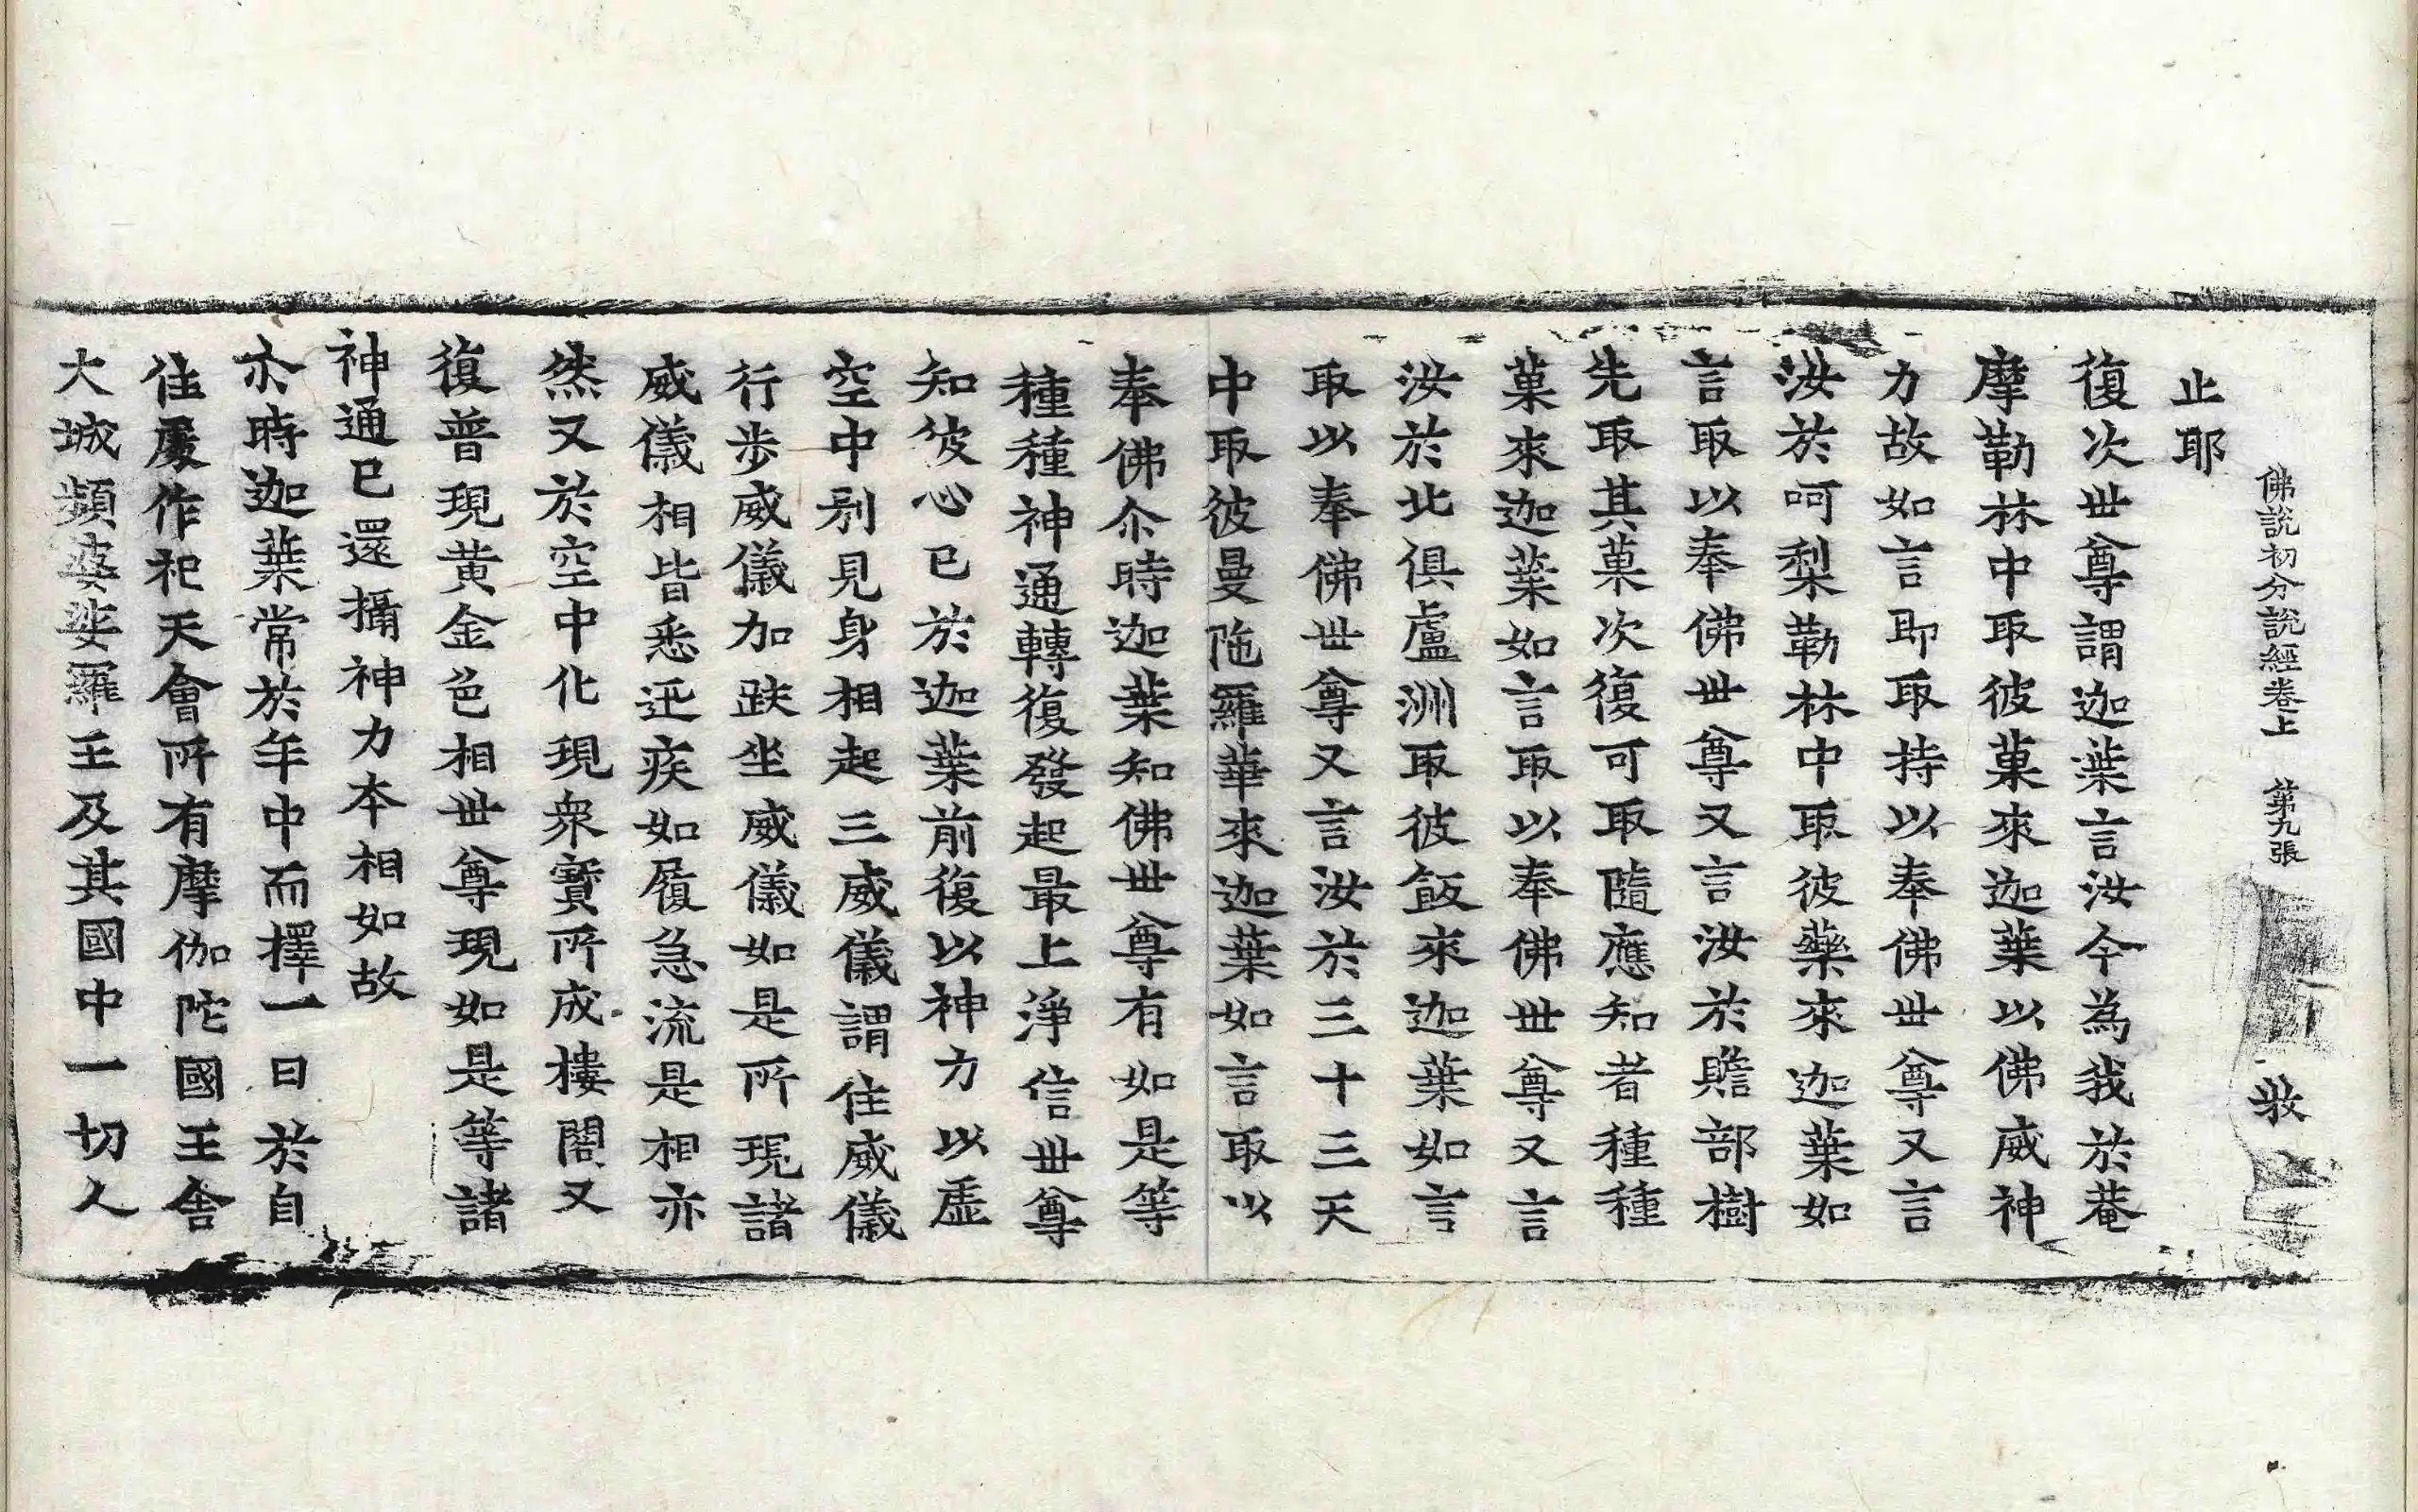 佛說初分說經卷上 第九張 㪅
止耶
復次世尊謂迦葉言汝今為我於菴
摩勒林中取彼菓來迦葉以佛威神
力故如言即取持以奉佛世尊又言
汝於呵梨勒林中取彼藥來迦葉如
言取以奉佛世尊又言汝於贍部樹
先取其菓次復可取隨應知者種種
菓來迦葉如言取以奉佛世尊又言
汝於北俱盧洲取彼飯來迦葉如言
取以奉佛世尊又言汝於三十三天
中取彼曼陁羅華來迦葉如言取以
奉佛尒時迦葉知佛世尊有如是等
種種神通轉復發起最上淨信世尊
知彼心已於迦葉前復以神力以虛
空中別見身相起三威儀謂住威儀
行步威儀加趺坐威儀如是所現諸
威儀相皆悉迅疾如履急流是相亦
然又於空中化現眾寶所成樓閣又
復普現黃金色相世尊現如是等諸
神通已還攝神力本相如故
尒時迦葉常於年中而擇一日於自
住處作祀天會所有摩伽陀國王舍
大城頻婆娑羅王及其國中一切人